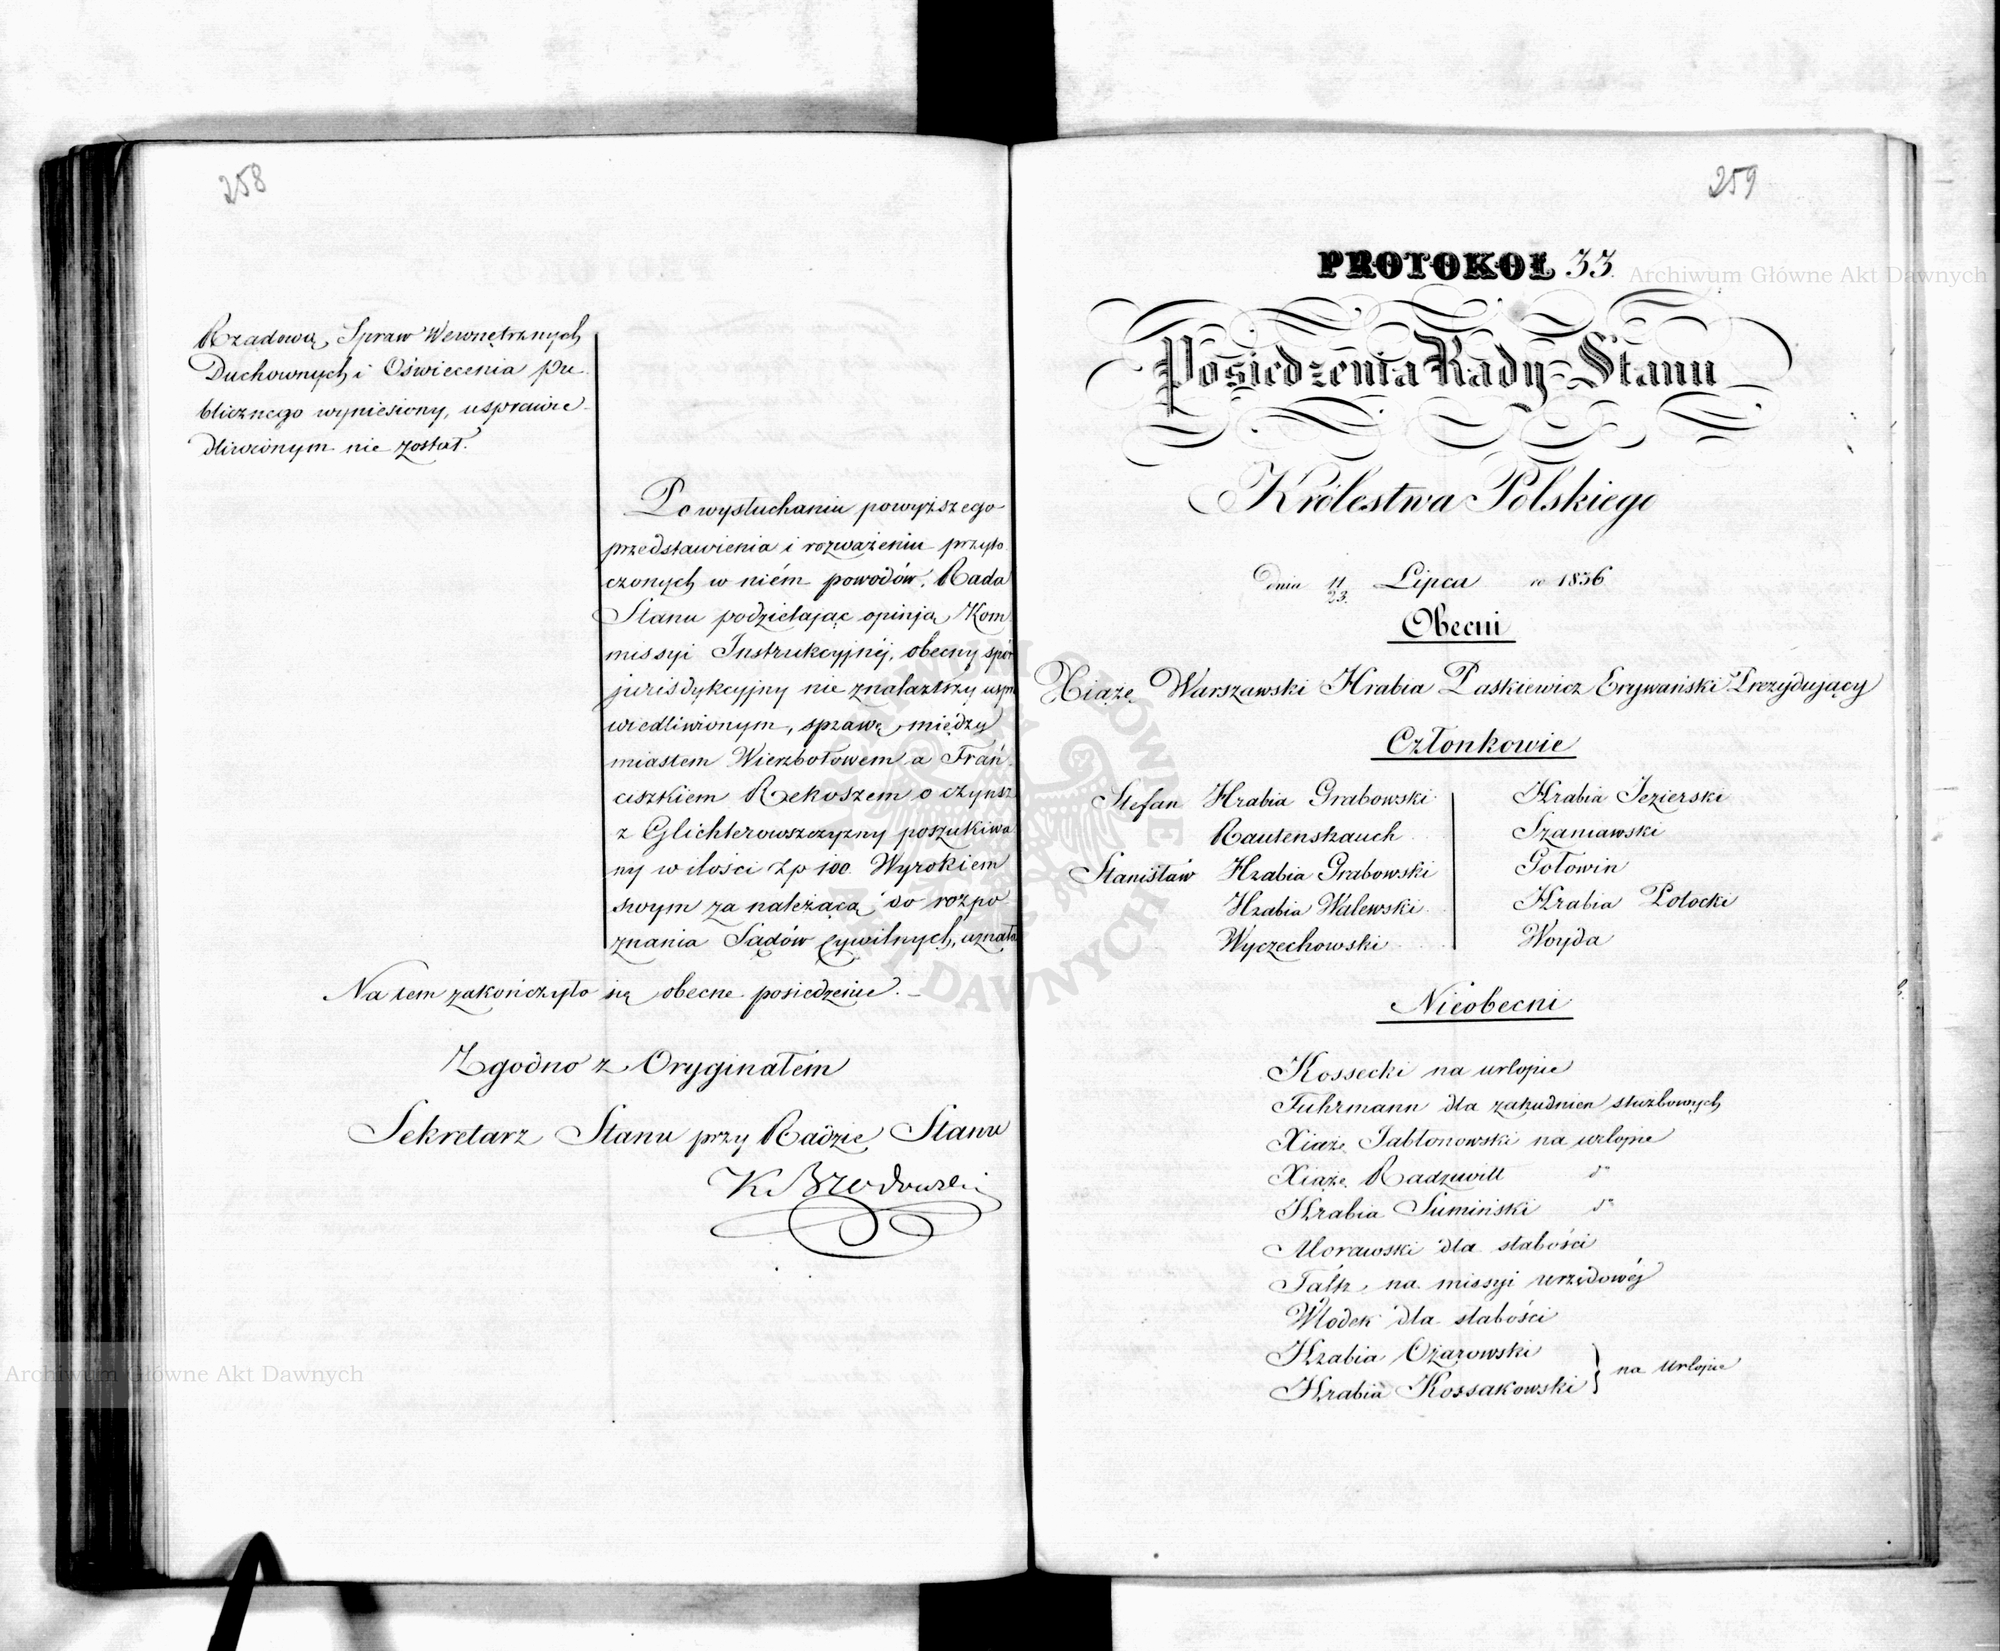 258
Rządową Spraw Wewnętrznych
Duchownych i Oświecenia pu
blicznego wyniesiony, usprawie-
dliwionym nie został.
Po wysłuchaniu powyższego
przedstawienia i rozważeniu przyto
czonych w niém powodów, Rada
Stanu podzielając opinją Kom
missyi Instrukcyjnéj, obecny spór
jurisdykcyjny nie znalazłszy uspra
wiedliwionym, sprawę między
miastem Wierzbołowem a Fran-
ciszkiem Rekoszem o czynsz
z Glichterowszczyzny poszukiwa
ny w ilości Zp 100. Wyrokiem
swym za należącą do rozpo
znania Sądów Cywilnych, uznała
Na tem zakończyło się obecne posiedzenie.
Zgodno z Oryginałem
Sekretarz Stanu przy Radzie Stanu
K. Brodowski
259
PROTOKOŁ 33.
Posiedzenia Rady Stanu
Królestwa Polskiego
dnia 11/23. Lipca ro 1836
Obecni
Xiąże Warszawski Hrabia Paskiewicz Erywański Prezydujący
Członkowie
Stefan Hrabia Grabowski
Rautenstrauch
Stanisław Hrabia Grabowski
Hrabia Walewski
Wyczechowski
Hrabia Jezierski
Szaniawski
Gołowin
Hrabia Potocki
Woyda
Nieobecni
Kossecki na urlopie
Fuhrmann dla zatrudnien służbowych
Xiąże Jabłonowski na urlopie
Xiąże Radziwiłł do
Hrabia Sumiński do
Morawski dla słabości
Faltz, na missyi urzędowéj
Włodek dla słabości
Hrabia Ożarowski
Hrabia Kossakowski } na urlopie
Archiwum Główne Akt Dawnych
Archiwum Główne Akt Dawnych
ARCHIWUM GŁÓWNE AKT DAWNYCH